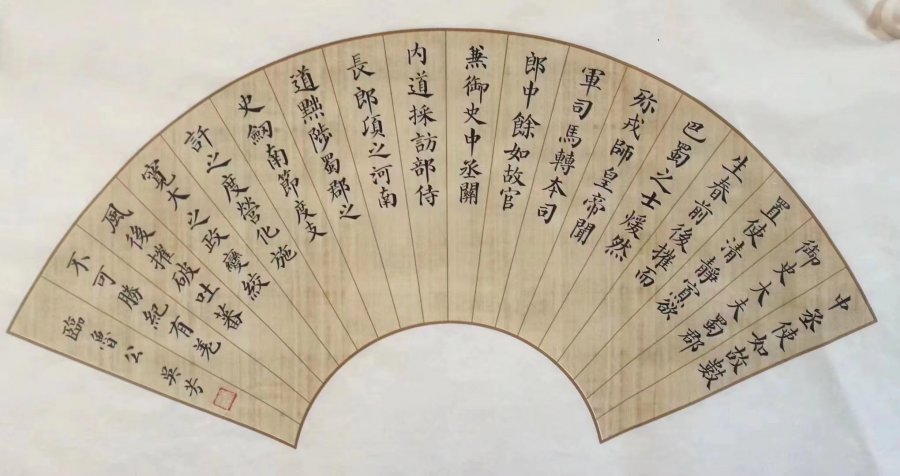 中丞使如故數
御史大夫蜀郡
置使清靜寘欲
生春前後摧而
巴蜀之士煖然
弥戎師皇帝聞
軍司馬轉本司
郎中餘如故官
兼御史中丞關
内道採訪部侍
長郎項之河南
道黜陟蜀郡之
史劒南節度支
許之度營化施
寬大之政變絞
風後摧破吐蕃
不可勝紀有羌
臨魯公 吳芳